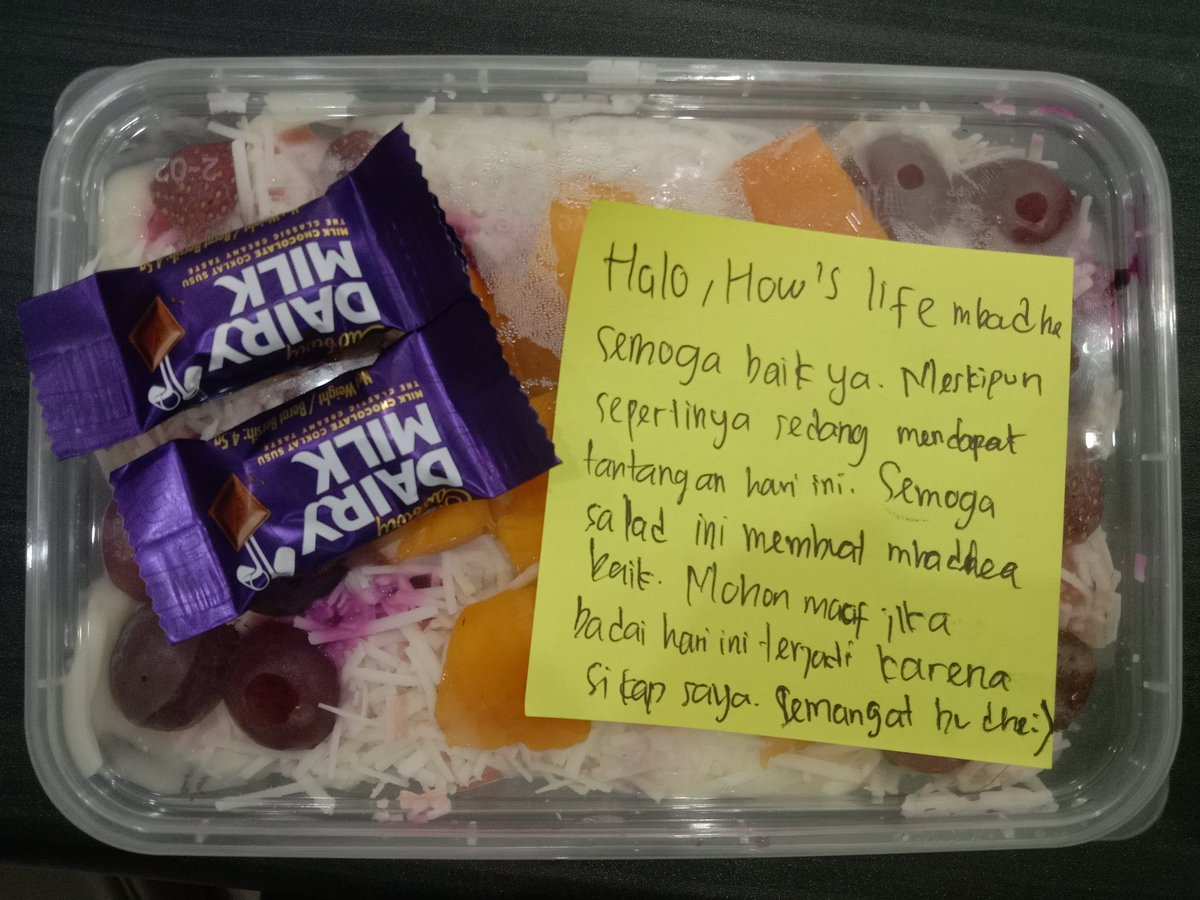 2-02
Cadbury
DAIRY
MILK
MILK CHOCOLATE COKLAT SUSU
THE CLASSIC CREAMY TASTE
Net Weight / Berat Bersih: 4.5g
Cadbury
DAIRY
MILK
MILK CHOCOLATE COKLAT SUSU
THE CLASSIC CREAMY TASTE
Net Weight / Berat Bersih: 4.5g
Halo, How's life mbadhe
semoga baik ya. Meskipun
sepertinya sedang mendapat
tantangan hari ini. Semoga
salad ini membuat mbadhea
baik. Mohon maaf jika
badai hari ini terjadi karena
sikap saya. Semangat bu dhe:)